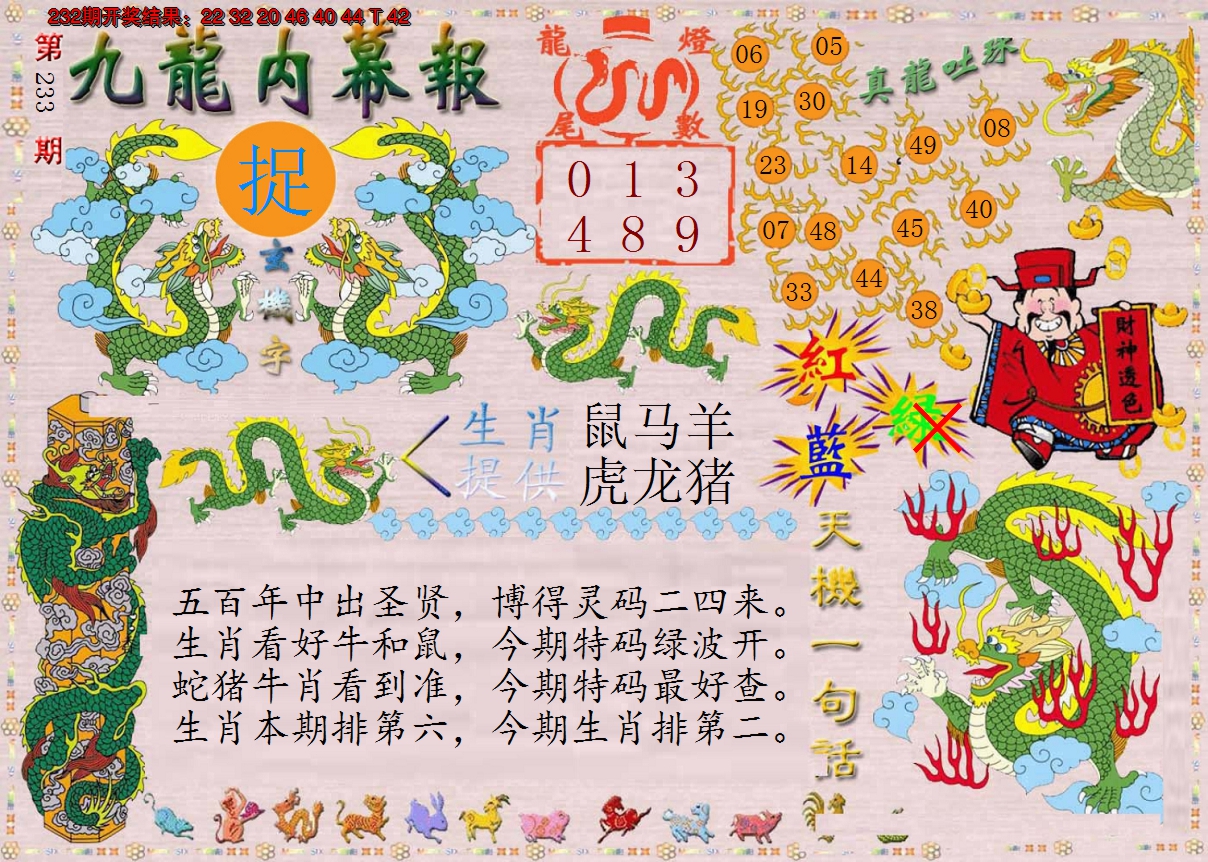 232期开奖结果：22 32 20 46 40 44 T 42
第233期
九龍内幕報
捉
玄機字
龍燈
尾數
0 1 3
4 8 9
真龍吐珠
06
05
19
30
49
08
23
14
07
48
45
40
33
44
38
財神透色
紅
綠
藍
生肖
提供
鼠马羊
虎龙猪
天機一句话
五百年中出圣贤，博得灵码二四来。
生肖看好牛和鼠，今期特码绿波开。
蛇猪牛肖看到准，今期特码最好查。
生肖本期排第六，今期生肖排第二。